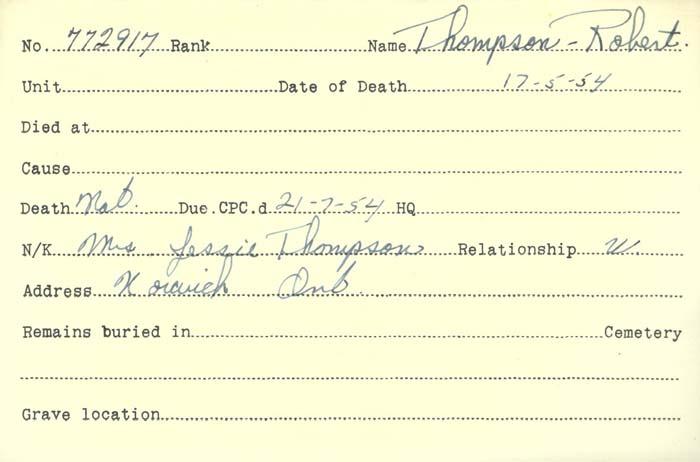 No. 772917 Rank Name Thompson - Robert.
Unit Date of Death 17-5-54
Died at
Cause
Death Nat. Due.CPC.d 21-7-54 HQ
N/K Mrs Jessie Thompson Relationship W.
Address Norwich Ont.
Remains buried in Cemetery
Grave location